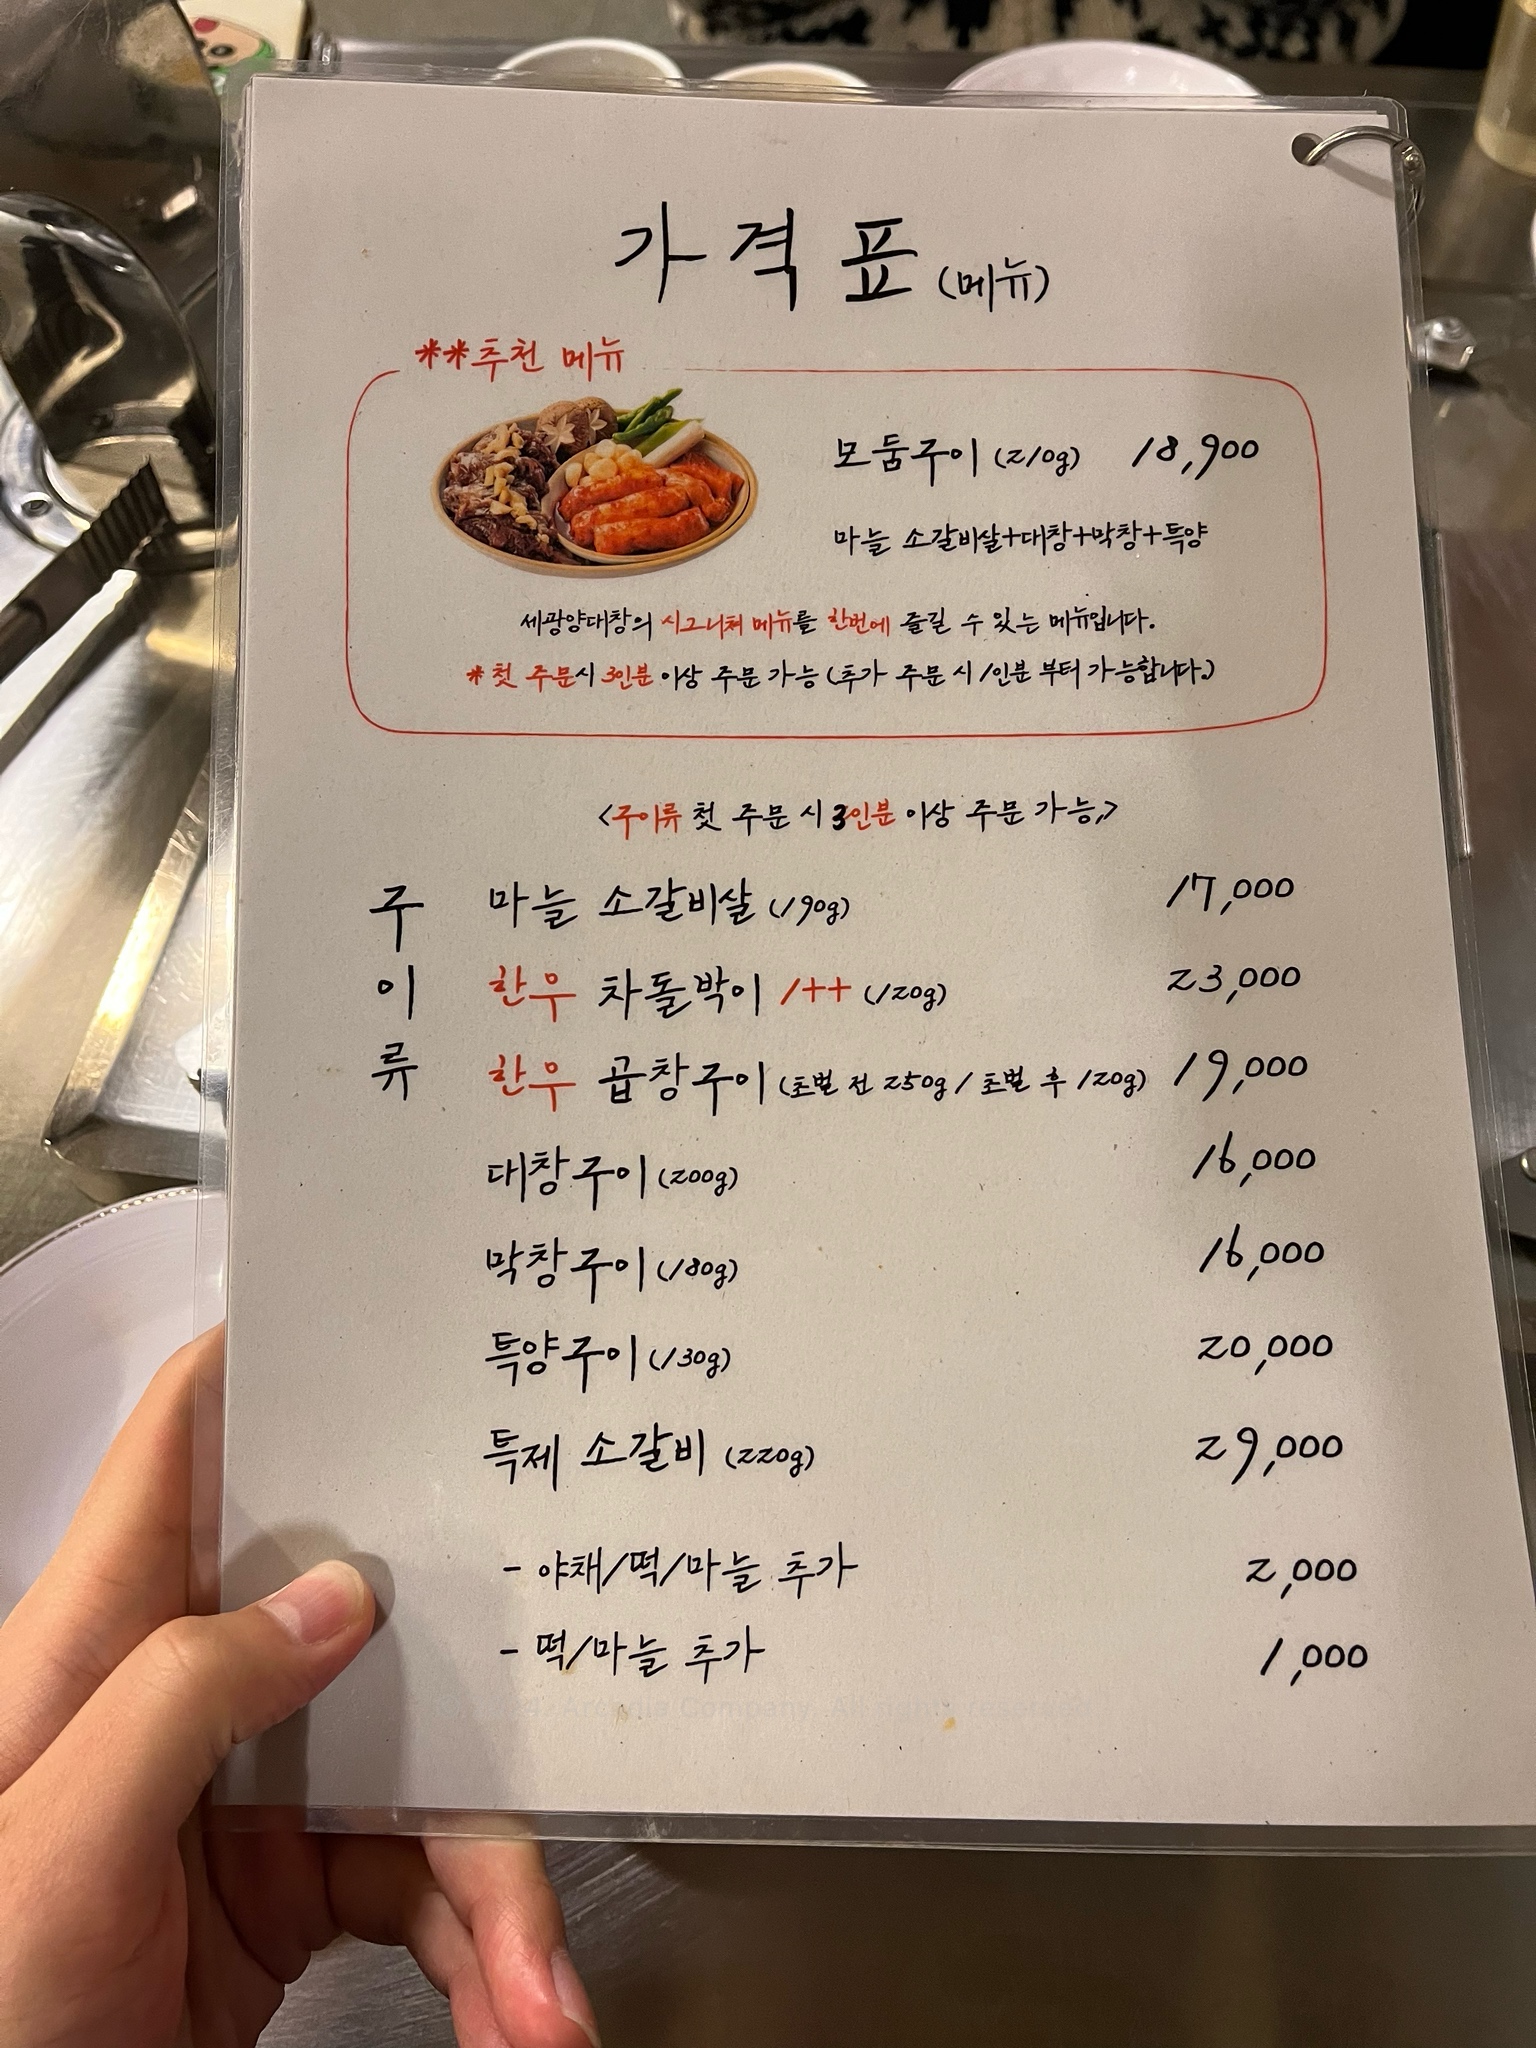 가격표 (메뉴)
**추천 메뉴
모둠구이 (210g) 18,900
마늘 소갈비살+대창+막창+특양
세광양대창의 시그니처 메뉴를 한번에 즐길 수 있는 메뉴입니다.
*첫 주문시 3인분 이상 주문 가능 (추가 주문 시 1인분 부터 가능합니다.)
<구이류 첫 주문 시 3인분 이상 주문 가능,>
구이류
마늘 소갈비살 (190g) 17,000
한우 차돌박이 1++ (120g) 23,000
한우 곱창구이 (초벌 전 250g / 초벌 후 120g) 19,000
대창구이 (200g) 16,000
막창구이 (180g) 16,000
특양구이 (130g) 20,000
특제 소갈비 (220g) 29,000
- 야채/떡/마늘 추가 2,000
- 떡/마늘 추가 1,000
Company. All